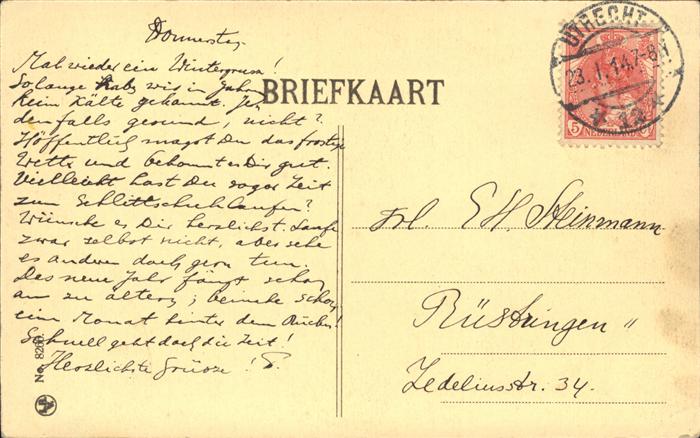 Donnerstg.
Mal wieder ein Wintergruss!
So lange hab wir in Jahren
kein Kälte gekannt. Je-
denfalls gesund, nicht?
Hoffentlich magst Du das frostige
Wetter und bekommt es Dir gut.
Vielleicht hast Du sogar Zeit
zum Schlittschuhlaufen?
Wünsche es Dir herzlichst. Laufe
zwar selbst nicht, aber sehe
es andern doch gern tun.
Das neue Jahr fängt schon
an zu altern; beinahe schon
ein Monat hinter dem Rücken!
Schnell geht doch die Zeit!
Herzlichste Grüsse!
BRIEFKAART
UTRECHT
23.1.14.7-8N
12
5
NEDERLAND
5
Frl. E.H. Steinmann
Rüstringen "
Zedeliusstr. 34.
No. 826